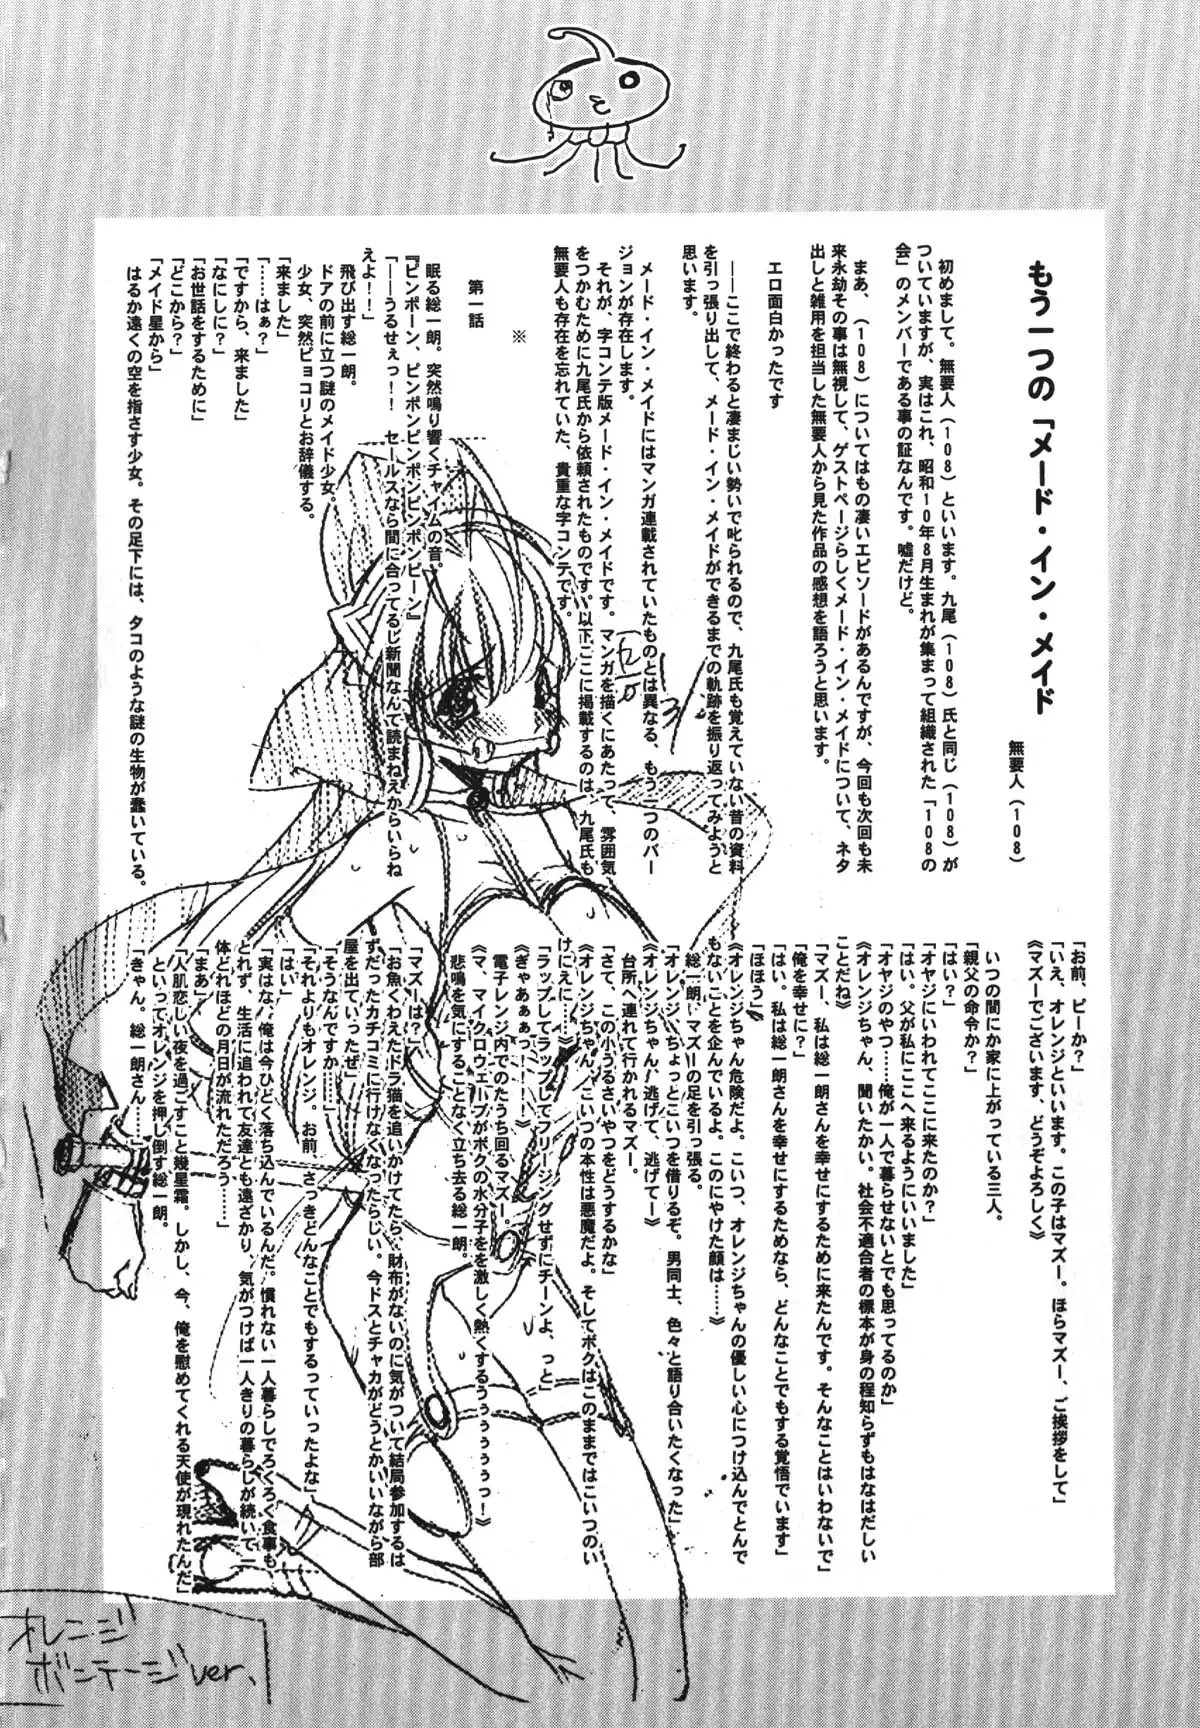 もう一つの「メード・イン・メイド
無要人（108）
初めまして。無要人（108）といいます。九尾（108）氏と同じ（108）が
ついていますが、実はこれ、昭和10年8月生まれが集まって組織された「108の
会」のメンバーである事の証なんです。嘘だけど。
まあ、（108）についてはもの凄いエピソードがあるんですが、今回も次回も未
来永劫その事は無視して、ゲストページらしくメード・イン・メイドについて、ネタ
出しと雑用を担当した無要人から見た作品の感想を語ろうと思います。
エロ面白かったです
――ここで終わると凄まじい勢いで叱られるので、九尾氏も覚えていない昔の資料
を引っ張り出して、メード・イン・メイドができるまでの軌跡を振り返ってみようと
思います。
メード・イン・メイドにはマンガ連載されていたものとは異なる、もう一つのバー
ジョンが存在します。
それが、字コンテ版メード・イン・メイドです。マンガを描くにあたって、雰囲気
をつかむために九尾氏から依頼されたものです。以下ここに掲載するのは、九尾氏も
無要人も存在を忘れていた、貴重な字コンテです。
※
第一話
眠る総一朗。突然鳴り響くチャイムの音。
『ピンポーン、ピンポンピンポンピンポンピーン』
「――うるせぇっ！！　セールスなら間に合ってるじ新聞なんて読まねえからいらね
えよ！！」
飛び出す総一朗。
ドアの前に立つ謎のメイド少女。
少女、突然ピョコリとお辞儀する。
「来ました」
「……はぁ？」
「ですから、来ました」
「なにしに？」
「お世話をするために」
「どこから？」
「メイド星から」
はるか遠くの空を指さす少女。その足下には、タコのような謎の生物が蠢いている。
「お前、ピーか？」
「いえ、オレンジといいます。この子はマズー。ほらマズー、ご挨拶をして」
《マズーでございます、どうぞよろしく》
いつの間にか家に上がっている三人。
「親父の命令か？」
「はい？」
「オヤジにいわれてここに来たのか？」
「はい。父が私にここへ来るようにいいました」
「オヤジのやつ……俺が一人で暮らせないとでも思ってるのか」
《オレンジちゃん、聞いたかい。社会不適合者の標本が身の程知らずもはなはだしい
ことだね》
「マズー、私は総一朗さんを幸せにするために来たんです。そんなことはいわないで」
「俺を幸せに？」
「はい。私は総一朗さんを幸せにするためなら、どんなことでもする覚悟でいます」
「ほほう」
《オレンジちゃん危険だよ。こいつ、オレンジちゃんの優しい心につけ込んでとんで
もないことを企んでいるよ。このにやけた顔は……》
総一朗、マズーの足を引っ張る。
「オレンジ、ちょっとこいつを借りるぞ。男同士、色々と語り合いたくなった」
《オレンジちゃん、逃げて、逃げてー》
台所へ連れて行かれるマズー。
「さて、この小うるさいやつをどうするかな」
《オレンジちゃん、こいつの本性は悪魔だよ。そしてボクはこのままではこいつのい
けにえに……》
「ラップしてラップしてフリージングせずにチーンよ、っと」
《ぎゃあぁぁっ！！！！》
電子レンジ内でのたうち回るマズー。
《マ、マイクロウェーブがボクの水分子をを激しく熱くするぅぅぅぅぅぅっ！》
悲鳴を気にすることなく立ち去る総一朗。
「マズーは？」
「お魚くわえたドラ猫を追いかけてたら、財布がないのに気がついて結局参加するは
ずだったカチコミに行けなくなったらしい。今ドスとチャカがどうとかいいながら部
屋を出ていったぜ」
「そうなんですか……」
「それよりもオレンジ。お前、さっきどんなことでもするっていったよな」
「はい」
「実はな、俺は今ひどく落ち込んでいるんだ。慣れない一人暮らしでろくろく食事も
とれず、生活に追われて友達とも遠ざかり、気がつけば一人きりの暮らしが続いて一
体どれほどの月日が流れただろう……」
「まあ」
「人肌恋しい夜を過ごすこと幾星霜。しかし、今、俺を慰めてくれる天使が現れたんだ」
といってオレンジを押し倒す総一朗。
「きゃん。総一朗さん……」
オレンジ
ボンテージver、